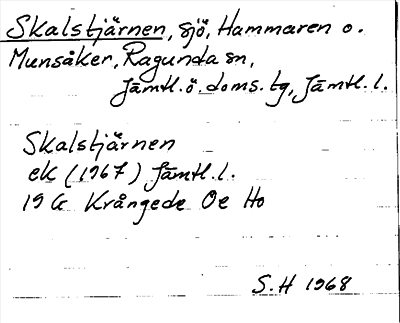 Skalstjärnen, sjö, Hammaren o.
Munsåker, Ragunda sn,
Jämtl. ö. doms. tg, Jämtl. l.
Skalstjärnen
ek (1967) Jämtl. l.
19 G Krångede Oe Ho
S.H 1968